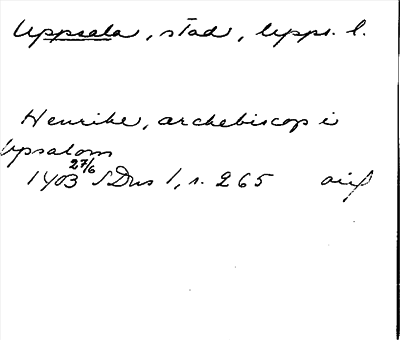 Uppsala, stad, Upps. l.
Henrike, archebiscop i
Upsalom
1403 27/6 SDns 1, s. 265 avs